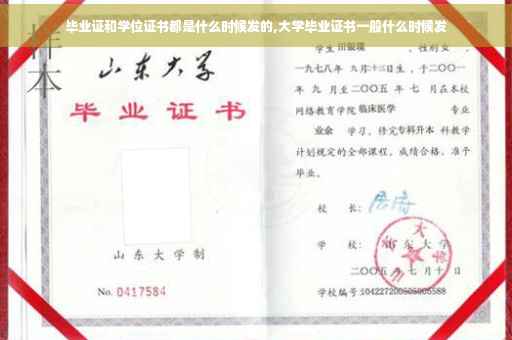 毕业证和学位证书都是什么时候发的,大学毕业证书一般什么时候发
样本
山东大学
毕业证书
山东大学制
No. 0417584
学生 田银瑞 ，性别 女 ，
一九七八年 九月十二日生，于二〇〇一
年 九 月至二〇〇五 年 七 月在本校
网络教育学院 临床医学 专业
业余 学习，修完 专科升本 科教学
计划规定的全部课程，成绩合格，准予
毕业。
校 长：
学 校：山东大学
二〇〇五 年 七 月 十 日
学校编号:104227200505005588